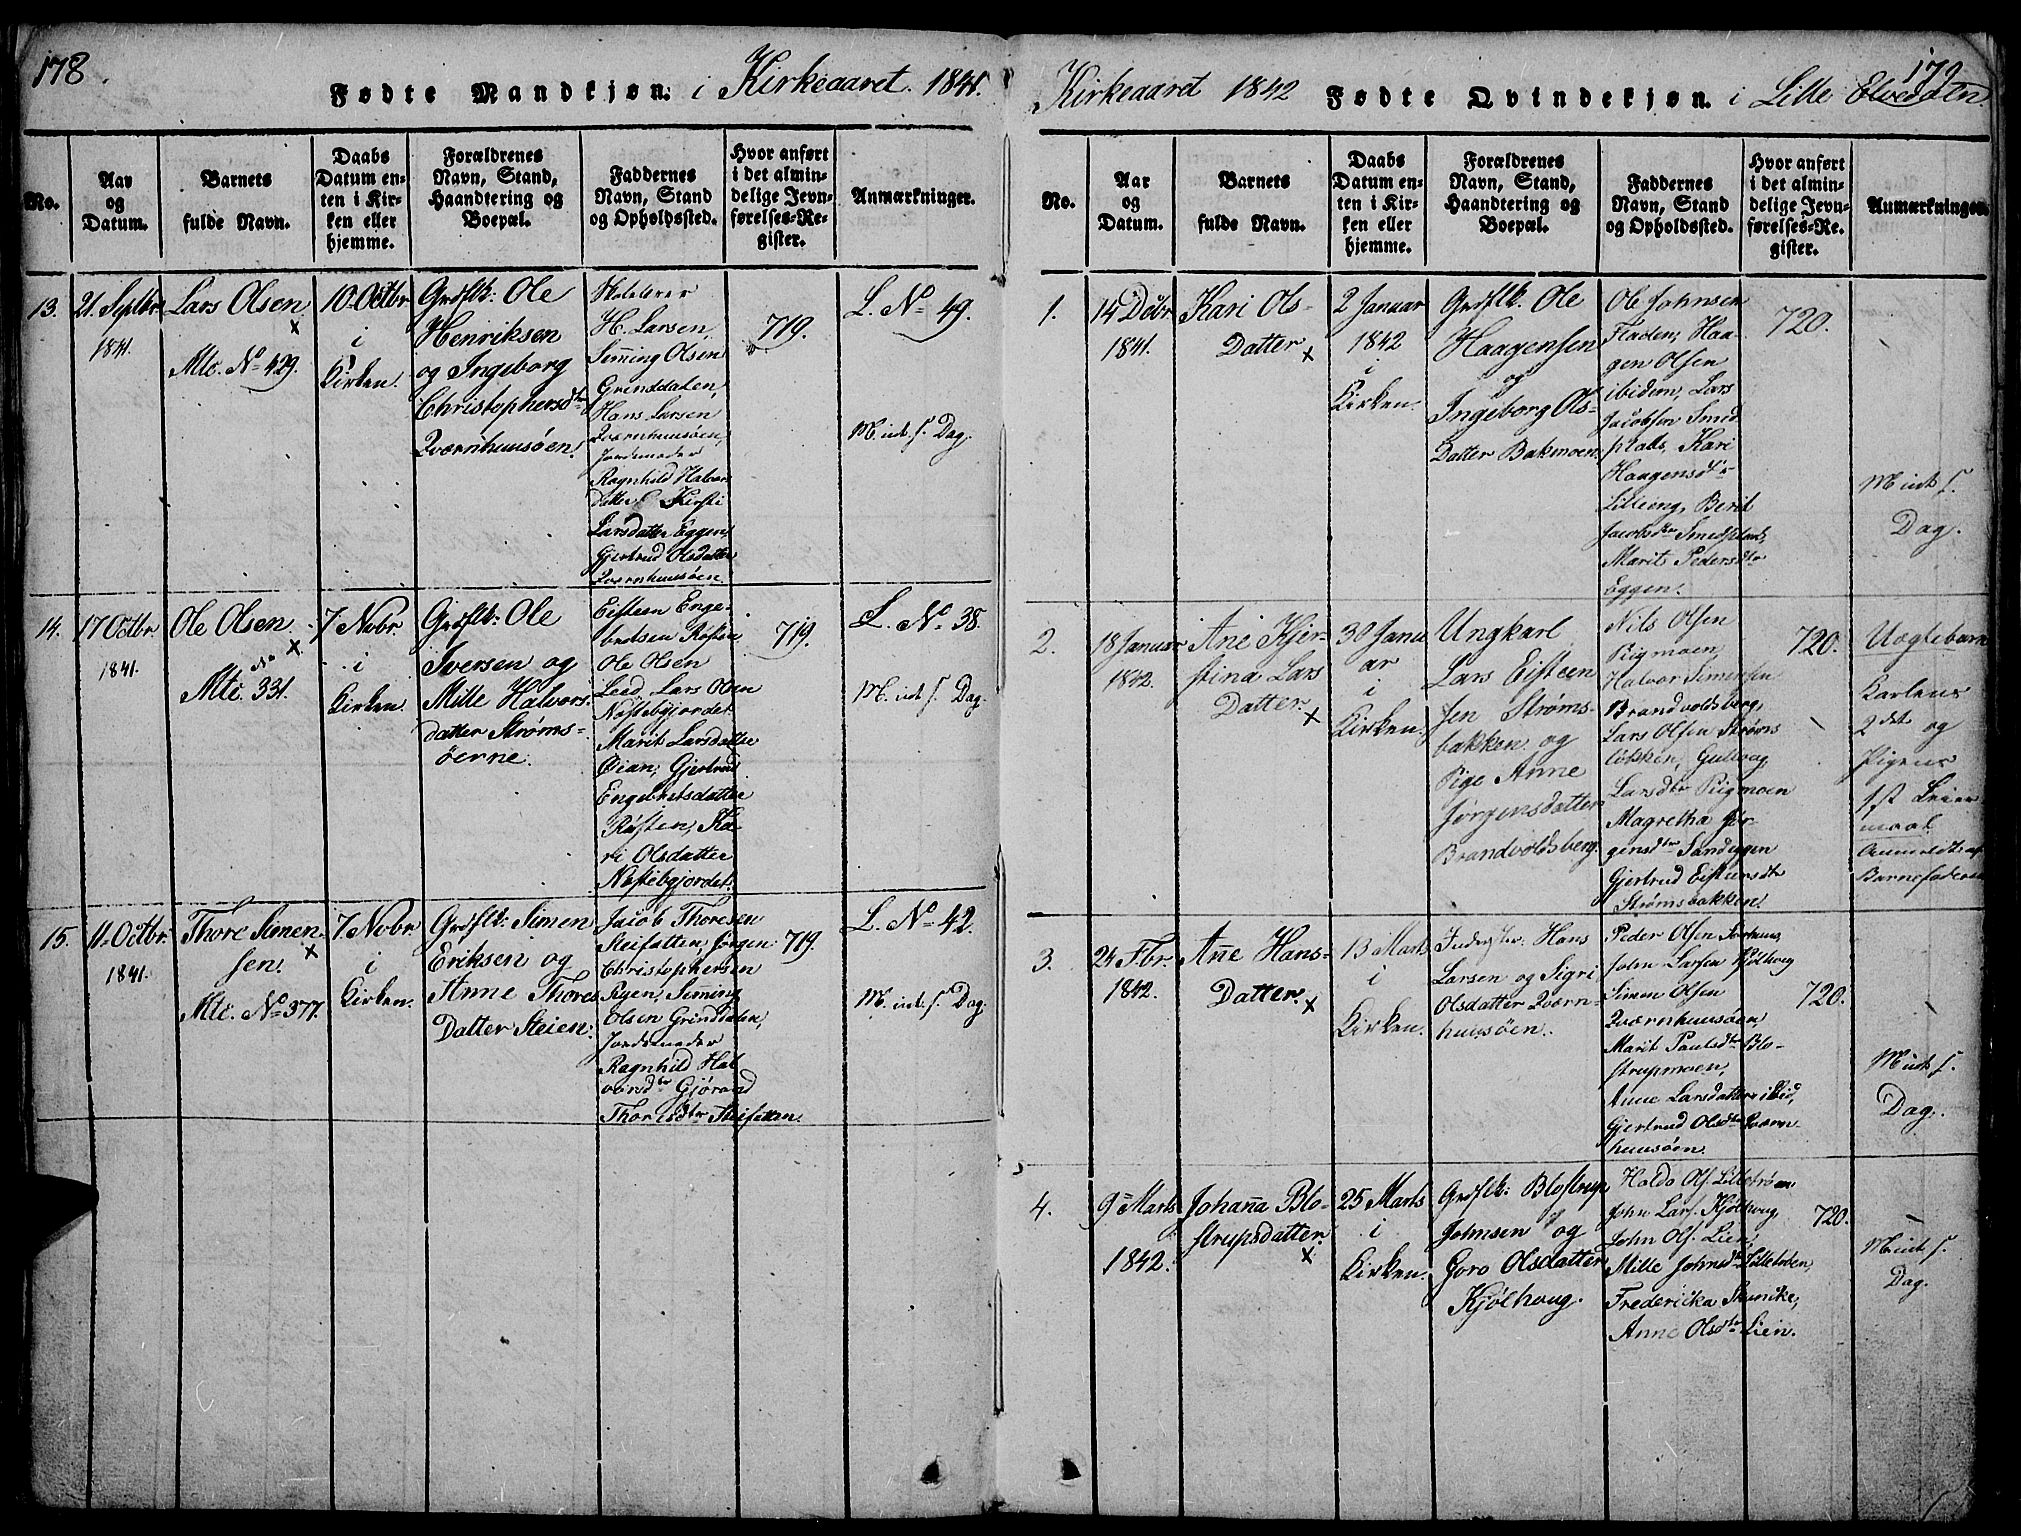 178.
Fødte Mandkjøn. i Kirkeaaret 1841.
No.
Aar
og
Datum.
Barnets
fulde Navn.
Daabs
Datum en-
ten i Kir-
ken eller
hjemme.
Forældrenes
Navn, Stand,
Haandtering og
Boepæl.
Faddernes
Navn, Stand
og Opholdssted.
Hvor anført
i det almin-
delige Jevn-
førelses-Re-
gister.
Anmærkninger.
13.
21. Septbr
1841.
Lars Olsen
×
Mtc. No 429.
10. Octbr
i
Kirken.
Grdflk: Ole
Henriksen
og Ingeborg
Christophersdtr
Qværnhuusøen.
Skolelærer
H. Larsen,
Semming Olsen
Grinddalen,
Hans Larsen
Qværnhuusøen,
Jordemoder
Ragnhild Halvors
Datter Kirsti
Larsdatter Eggen,
Gjertrud Olsdatter
Qværnhuusøen.
719.
L. No 49.
M. udt s. Dag.
14.
17 Octbr
1841.
Ole Olsen
×
No
Mtc. 331.
7 Novbr.
i
Kirken.
Grdflk: Ole
Iversen og
Mille Halvors-
datter Strøms-
øerne.
Eisteen Enge-
bretsen Røsten
Ole Olsen
Lars Olsen
Nøstebgjordet
Marit Larsdatter
Øian, Gjertrud
Engebretsdatter
Røsten, Ka-
ri Olsdatter
Nøstebgjordet.
719.
L. No 38.
M. udt s. Dag.
15.
11. Octbr.
1841.
Thore Simen-
sen.
×
Mtc. No 377.
7. Novbr
i
Kirken.
Grdflk: Simen
Eriksen og
Anne Thores
Datter Steien.
Jacob Thoresen
Steifatten, Jørgen
Christophersen
Semming
Olsen Grinddalen,
Jordemoder
Ragnhild Hal
vorsdtr Gjørand
Thoresdtr Steifatten.
719.
L. No 42.
M. udt s. Dag.
179
Kirkeaaret 1842 Fødte Qvindekjøn. i Lille Elvedalen
No.
Aar
og
Datum.
Barnets
fulde Navn.
Daabs
Datum en-
ten i Kir-
ken eller
hjemme.
Forældrenes
Navn, Stand,
Haandtering og
Boepæl.
Faddernes
Navn, Stand
og Opholdssted.
Hvor anført
i det almin-
delige Jevn-
førelses-Re-
gister.
Anmærkninger.
1.
14 Dcbr
1841.
Kari Ols-
Datter
×
2 Januar
1842
i
Kirken.
Grdflk. Ole
Haagensen
og
Ingeborg Ols-
Datter Bakmoen.
Ole Johnsen
Fladen, Haa-
gen Olsen
ibidem, Lars
Jacobsen Smed
plads, Kari
Haagensdtr
Lilleeng, Berit
Jacobsdtr Smedplads,
Marits Pedersdtr
Eggen.
720.
M udt s.
Dag.
2.
18 Januar
1842.
Ane Kjer-
stina Lars
Datter.
×
30 Janu
ar
i
Kirken.
Ungkarl
Lars Eisteen
sen Strøms-
bakken og
Pige Anne
Jørgensdatter
Brandvoldsberg.
Nils Olsen
Rigmoen,
Halvor Simensen
Brandvoldsberg,
Lars Olsen Strøms
løkken, Guloug
Larsdtr Rigmoen
Magretha Jør-
gensdtr Sandeggen
Gjertrud Eisteensdtr
Strømsbakken.
720.
Uægtebarn
Karlens
2det og
Pigens
1st Leier
maal
Anmeldts af
Barnefaderen
3.
24 Fbr.
1842.
Anne Hans-
Datter.
×
13 Marts
i
Kirken.
Hans
Larsen og Sigri
Olsdatter Qværn-
huusøen.
Peder Olsen
John Larsen Kjølhoug
Simen Olsen
Qværnhuusøen,
Marit Paulsdtr Blo-
strupmoen,
Anne Larsdatter ibid,
Gjertrud Olsdtr Qværn
huusøen.
720.
M udt s.
Dag.
4.
9 Marts
1842.
Johanna Blo-
strupsdatter.
×
25 Marts
i
Kirken.
Grdflk: Blostrup
Johnsen og
Goro Olsdatter
Kjølhoug.
Haldo Ols. Lillestrøen
John Lars. Kjølhoug,
John Ols. Lien,
Mille Johnsdtr
Fredericka Skancke,
Anne Olsdtr Lien.
720.
M udt s.
Dag.